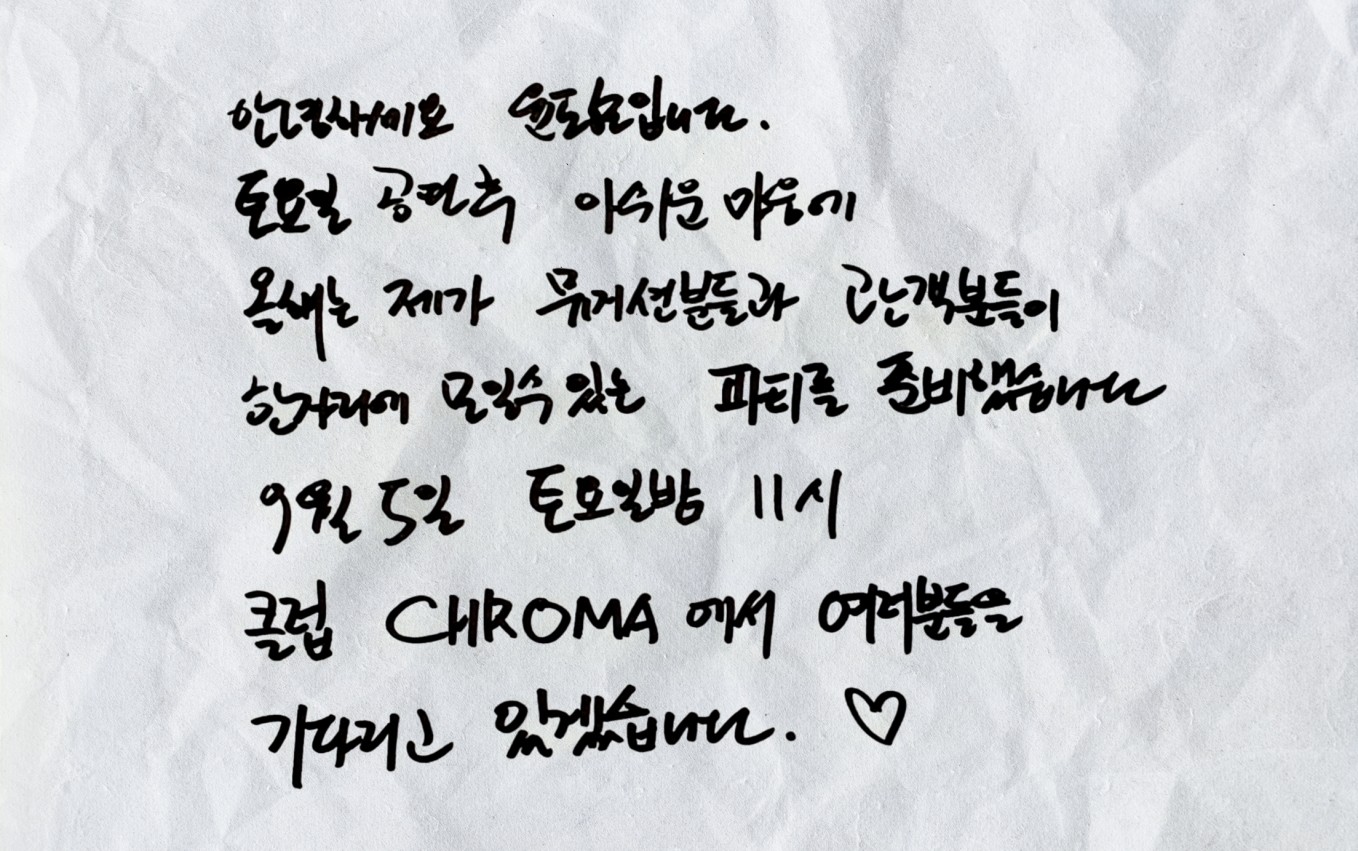 안녕하세요 윤도현입니다.
토요일 공연후 아쉬운 마음에
올해는 제가 뮤지션분들과 관객분들이
한자리에 모일수 있는 파티를 준비했습니다
9월 5일 토요일밤 11시
클럽 CHROMA 에서 여러분들을
기다리고 있겠습니다. ♡